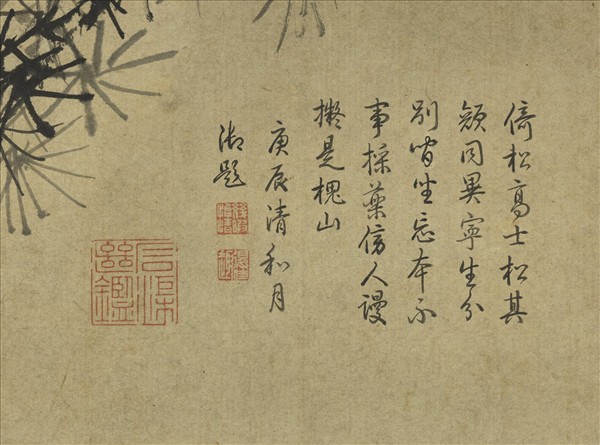 倚松高士松其
顏同異寧生分
別間坐忘本不
事採藥傍人謾
擬是槐山
庚辰清和月
御題